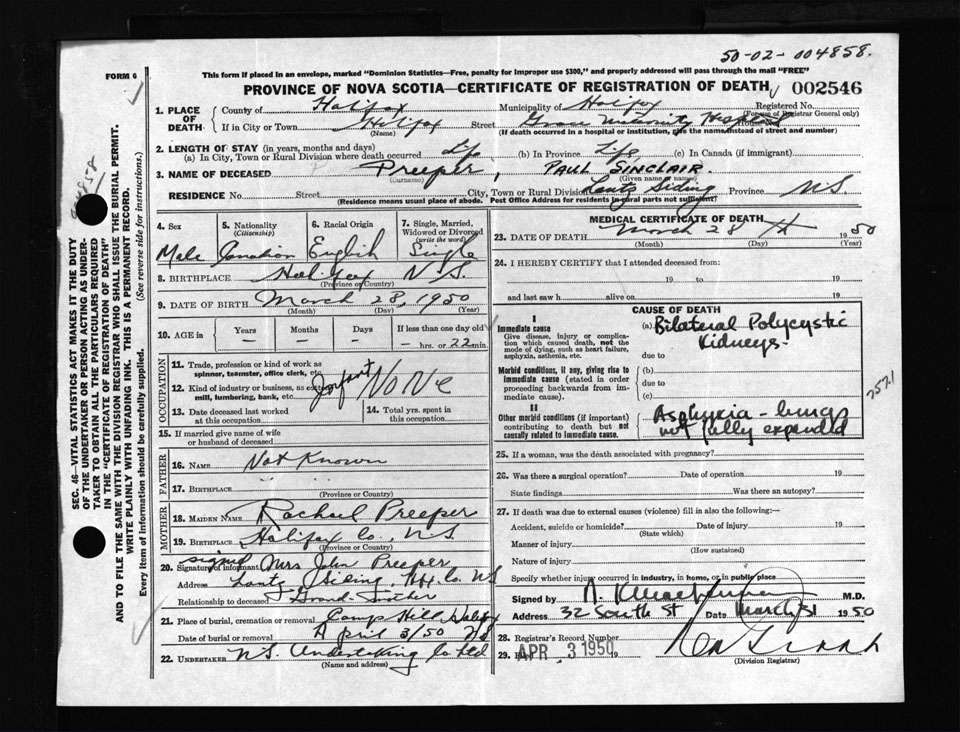 50-02-004858.
FORM 6
This form if placed in an envelope, marked "Dominion Statistics—Free, penalty for improper use $300," and properly addressed will pass through the mail "FREE"
PROVINCE OF NOVA SCOTIA—CERTIFICATE OF REGISTRATION OF DEATH 002546
1. PLACE OF DEATH
County of Halifax Municipality of Halifax Registered No.
(For use of Registrar General only)
If in City or Town Halifax Street Grace Maternity Hospital
(Name) (If death occurred in a hospital or institution, give the name instead of street and number)
2. LENGTH OF STAY (in years, months and days)
(a) In City, Town or Rural Division where death occurred Life (b) In Province Life (c) In Canada (if immigrant)
3. NAME OF DECEASED Preeper, PAUL SINCLAIR.
(Surname) (Given name or names)
RESIDENCE No. Street City, Town or Rural Division Lantz Siding Province N.S.
(Residence means usual place of abode. Post Office Address for residents in rural parts not sufficient)
SEC. 46—VITAL STATISTICS ACT MAKES IT THE DUTY
OF THE UNDERTAKER OR PERSON ACTING AS UNDER-
TAKER TO OBTAIN ALL THE PARTICULARS REQUIRED
IN THE "CERTIFICATE OF REGISTRATION OF DEATH"
AND TO FILE THE SAME WITH THE DIVISION REGISTRAR WHO SHALL ISSUE THE BURIAL PERMIT.
WRITE PLAINLY WITH UNFADING INK. THIS IS A PERMANENT RECORD.
Every item of information should be carefully supplied. (See reverse side for instructions.)
4. Sex 5. Nationality (Citizenship) 6. Racial Origin 7. Single, Married, Widowed or Divorced (write the word)
Male Canadian English Single
8. BIRTHPLACE Halifax N.S.
(Province or Country)
9. DATE OF BIRTH March 28, 1950
(Month) (Day) (Year)
10. AGE in Years Months Days If less than one day old
— — — — hrs. or 22 min.
OCCUPATION
11. Trade, profession or kind of work as
spinner, teamster, office clerk, etc. Infant
12. Kind of industry or business, as cotton
mill, lumbering, bank, etc. NoNe
13. Date deceased last worked at this occupation
14. Total yrs. spent in this occupation
15. If married give name of wife
or husband of deceased
FATHER
16. NAME Not Known
17. BIRTHPLACE " "
(Province or Country)
MOTHER
18. MAIDEN NAME Rachael Preeper
19. BIRTHPLACE Halifax Co., N.S.
(Province or Country)
20. Signature of informant signed Mrs John Preeper
Address Lantz Siding, Co. NS
Relationship to deceased Grand
21. Place of burial, cremation or removal Camp Hill Halifax
Date of burial or removal April 3/50 NS
22. UNDERTAKER N.S. Undertaking Co Ltd
(Name and address)
MEDICAL CERTIFICATE OF DEATH
23. DATE OF DEATH March 28 1950
(Month) (Day) (Year)
24. I HEREBY CERTIFY that I attended deceased from:
19 to 19
and last saw h alive on 19
CAUSE OF DEATH
I
Immediate cause
Give disease, injury or complication which caused death, not the mode of dying, such as heart failure, asphyxia, asthenia, etc.
(a) Bilateral Polycystic Kidneys.
due to
Morbid conditions, if any, giving rise to immediate cause (stated in order proceeding backwards from immediate cause).
(b)
due to
(c)
7571
II
Other morbid conditions (if important) contributing to death but not causally related to immediate cause.
Asphyxia - lungs
not fully expanded
25. If a woman, was the death associated with pregnancy?
26. Was there a surgical operation? Date of operation 19
State findings Was there an autopsy?
27. If death was due to external causes (violence) fill in also the following:—
Accident, suicide or homicide? Date of injury 19
(State which)
Manner of injury
(How sustained)
Nature of injury
Specify whether injury occurred in industry, in home, or in public place
Signed by M.D.
Address 32 South St Date March 31 1950
28. Registrar's Record Number
29. APR 3 1950 19
(Division Registrar)